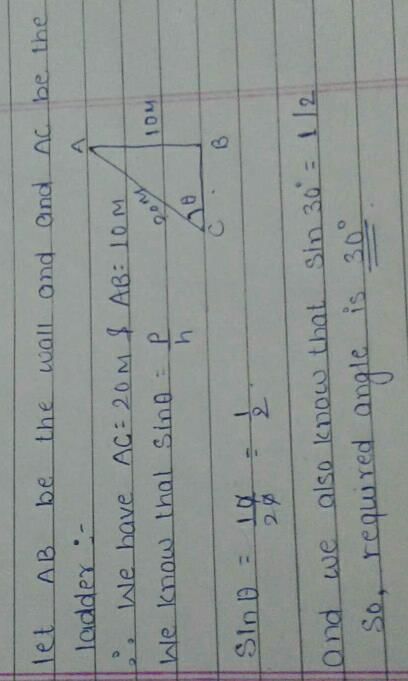 let AB be the wall and and AC be the
ladder :-
∴ We have AC = 20M & AB = 10M
We know that Sinθ = P/h
Sinθ = 10/20 = 1/2
and we also know that Sin 30° = 1/2
So, required angle is 30°.
A
10M
20M
θ
C
B